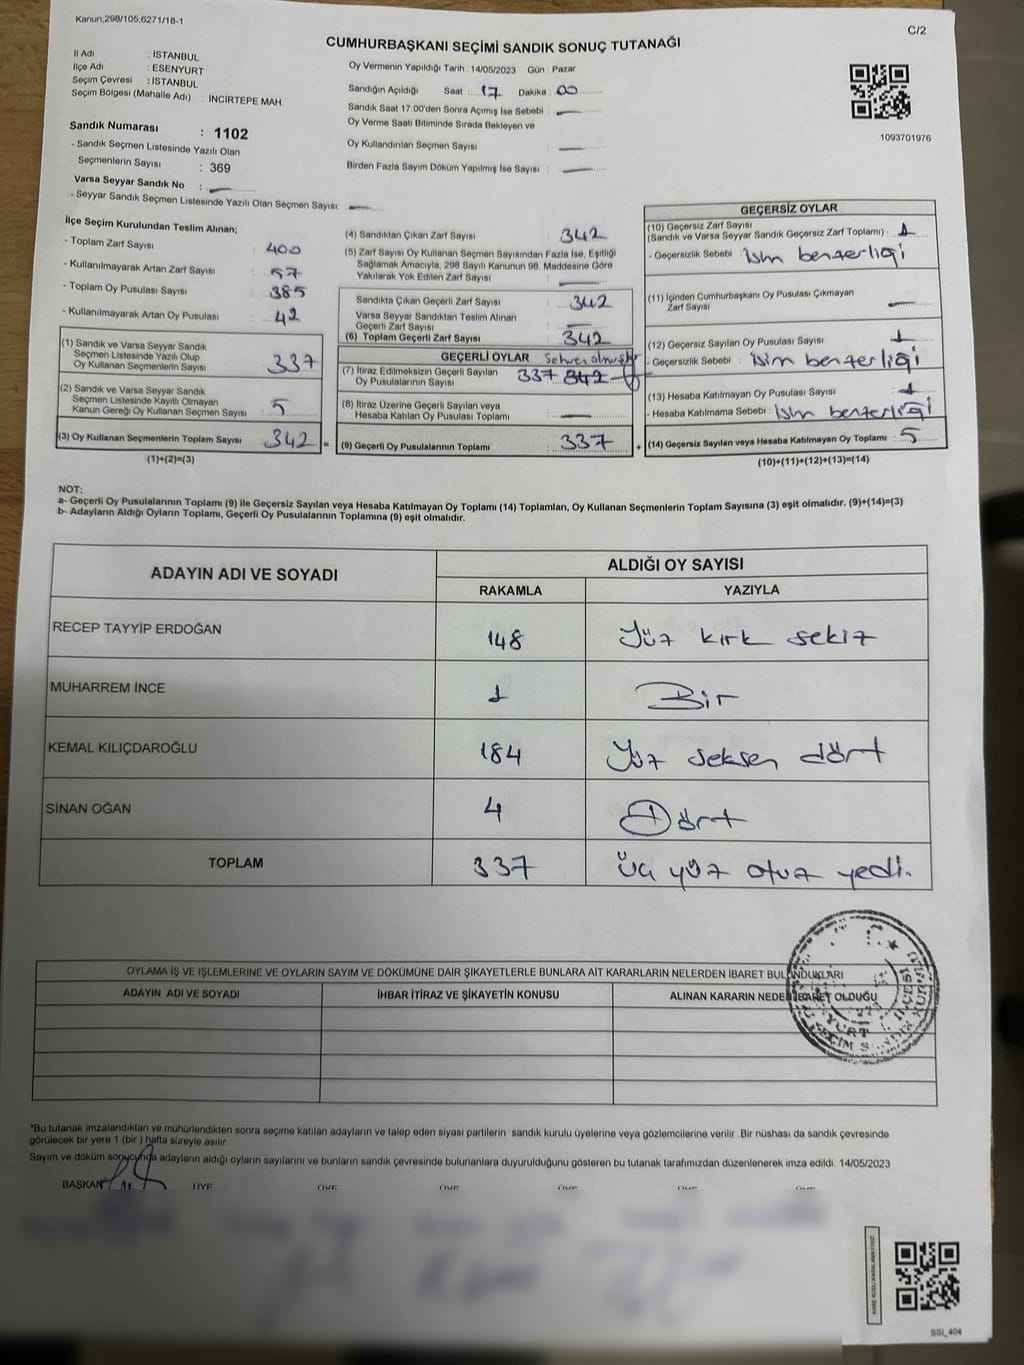 Kanun;298/105;6271/18-1
C/2
CUMHURBAŞKANI SEÇİMİ SANDIK SONUÇ TUTANAĞI
İl Adı : İSTANBUL
İlçe Adı : ESENYURT
Seçim Çevresi : İSTANBUL
Seçim Bölgesi (Mahalle Adı) : İNCİRTEPE MAH.
Sandık Numarası : 1102
- Sandık Seçmen Listesinde Yazılı Olan
Seçmenlerin Sayısı : 369
Varsa Seyyar Sandık No : —
- Seyyar Sandık Seçmen Listesinde Yazılı Olan Seçmen Sayısı: —
Oy Vermenin Yapıldığı Tarih : 14/05/2023 Gün : Pazar
Sandığın Açıldığı Saat :.. 17 Dakika : 00
Sandık Saat 17.00'den Sonra Açımış İse Sebebi : —
Oy Verme Saati Bitiminde Sırada Bekleyen ve
Oy Kullandırılan Seçmen Sayısı : —
Birden Fazla Sayım Döküm Yapılmış İse Sayısı : —
1093701976
İlçe Seçim Kurulundan Teslim Alınan;
- Toplam Zarf Sayısı : 400
- Kullanılmayarak Artan Zarf Sayısı : 57
- Toplam Oy Pusulası Sayısı : 385
- Kullanılmayarak Artan Oy Pusulası : 42
(1) Sandık ve Varsa Seyyar Sandık
Seçmen Listesinde Yazılı Olup
Oy Kullanan Seçmenlerin Sayısı : 337
(2) Sandık ve Varsa Seyyar Sandık
Seçmen Listesinde Kayıtlı Olmayan
Kanun Gereği Oy Kullanan Seçmen Sayısı : 5
(3) Oy Kullanan Seçmenlerin Toplam Sayısı : 342 =
(1)+(2)=(3)
(4) Sandıktan Çıkan Zarf Sayısı : 342
(5) Zarf Sayısı Oy Kullanan Seçmen Sayısından Fazla İse, Eşitliği
Sağlamak Amacıyla, 298 Sayılı Kanunun 98. Maddesine Göre
Yakılarak Yok Edilen Zarf Sayısı : —
Sandıkta Çıkan Geçerli Zarf Sayısı : 342
Varsa Seyyar Sandıktan Teslim Alınan
Geçerli Zarf Sayısı : —
(6) Toplam Geçerli Zarf Sayısı : 342
GEÇERLİ OYLAR
(7) İtiraz Edilmeksizin Geçerli Sayılan
Oy Pusulalarının Sayısı : 337 342
(8) İtiraz Üzerine Geçerli Sayılan veya
Hesaba Katılan Oy Pusulası Toplamı : —
(9) Geçerli Oy Pusulalarının Toplamı : 337 +
GEÇERSİZ OYLAR
(10) Geçersiz Zarf Sayısı
(Sandık ve Varsa Seyyar Sandık Geçersiz Zarf Toplamı) : 1
- Geçersizlik Sebebi : isim benzerliği
(11) İçinden Cumhurbaşkanı Oy Pusulası Çıkmayan
Zarf Sayısı : —
(12) Geçersiz Sayılan Oy Pusulası Sayısı : 1
- Geçersizlik Sebebi : isim benzerliği
(13) Hesaba Katılmayan Oy Pusulası Sayısı : 1
- Hesaba Katılmama Sebebi : isim benzerliği
(14) Geçersiz Sayılan veya Hesaba Katılmayan Oy Toplamı : 5
(10)+(11)+(12)+(13)=(14)
NOT:
a- Geçerli Oy Pusulalarının Toplamı (9) ile Geçersiz Sayılan veya Hesaba Katılmayan Oy Toplamı (14) Toplamları, Oy Kullanan Seçmenlerin Toplam Sayısına (3) eşit olmalıdır. (9)+(14)=(3)
b- Adayların Aldığı Oyların Toplamı, Geçerli Oy Pusulalarının Toplamına (9) eşit olmalıdır.
ADAYIN ADI VE SOYADI
ALDIĞI OY SAYISI
RAKAMLA YAZIYLA
RECEP TAYYİP ERDOĞAN 148 Yüz kırk sekiz
MUHARREM İNCE 1 Bir
KEMAL KILIÇDAROĞLU 184 Yüz seksen dört
SİNAN OĞAN 4 Dört
TOPLAM 337 üç yüz otuz yedi.
OYLAMA İŞ VE İŞLEMLERİNE VE OYLARIN SAYIM VE DÖKÜMÜNE DAİR ŞİKAYETLERLE BUNLARA AİT KARARLARIN NELERDEN İBARET BULUNDUKLARI
ADAYIN ADI VE SOYADI İHBAR İTİRAZ VE ŞİKAYETİN KONUSU ALINAN KARARIN NEDEN İBARET OLDUĞU
*Bu tutanak imzalandıktan ve mühürlendikten sonra seçime katılan adayların ve talep eden siyasi partilerin sandık kurulu üyelerine veya gözlemcilerine verilir .Bir nüshası da sandık çevresinde
görülecek bir yere 1 (bir ) hafta süreyle asılır.
Sayım ve döküm sonucunda adayların aldığı oyların sayılarını ve bunların sandık çevresinde bulunanlara duyurulduğunu gösteren bu tutanak tarafımızdan düzenlenerek imza edildi. 14/05/2023
BAŞKAN ÜYE ÜYE ÜYE ÜYE ÜYE ÜYE
SSI_404